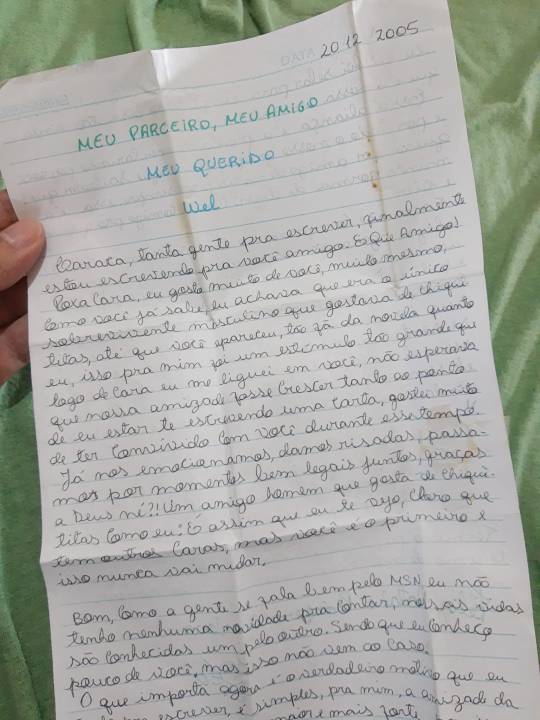 DATA 20 12 2005
MEU PARCEIRO, MEU AMIGO
MEU QUERIDO
Wel
Caraca, tanta gente pra escrever, finalmente
estou escrevendo pra você amigo. E Que Amigo!
Poxa Cara, eu gosto muito de você, muito mesmo,
Como você já sabe, eu achava que era o único
sobrevivente masculino que gostava de chiqui
titas, até que você apareceu, tão fã da novela quanto
eu, isso pra mim foi um estímulo tão grande que
logo de Cara eu me liguei em você, não esperava
que nossa amizade fosse Crescer tanto ao ponto
de eu estar te escrevendo uma Carta, gostei muito
de ter Convivido Com você durante esse tempo.
Já nos emocionamos, damos risadas, passa-
mos por momentos bem legais juntos, graças
a Deus né?!! Um amigo homem que gosta de Chiqui-
titas Como eu! E assim que eu te vejo, Claro que
tem outros Caras, mas você é o primeiro e
isso nunca vai mudar.
Bom, Como a gente se fala bem pelo MSN eu não
tenho nenhuma novidade pra Contar, nossas vidas
são Conhecidas um pelo outro. Sendo que eu Conheço
pouco de você, mas isso não vem ao Caso.
O que importa agora é o verdadeiro motivo que eu
escrever, é simples, pra mim, a amizade da
maior e mais forte